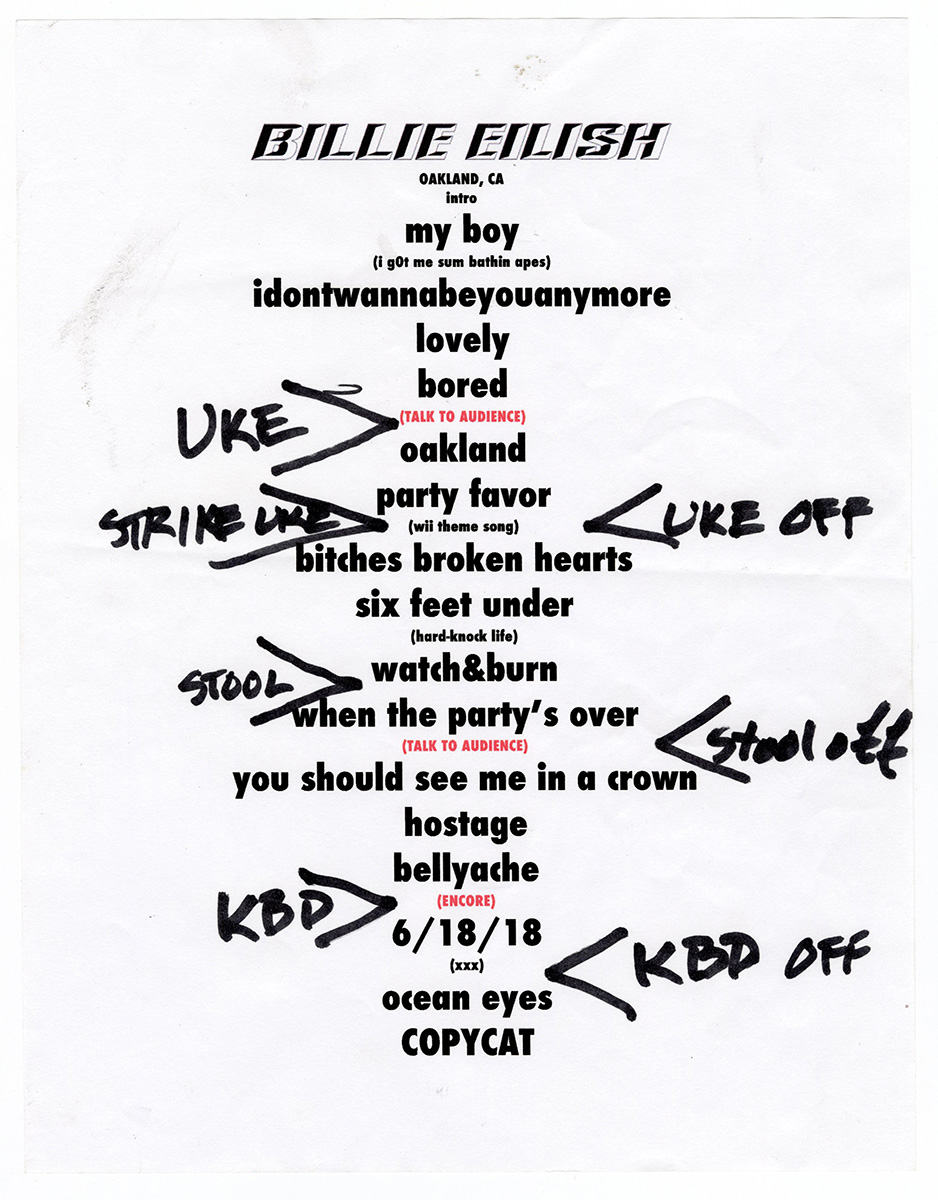 BILLIE EILISH
OAKLAND, CA
intro
my boy
(i g0t me sum bathin apes)
idontwannabeyouanymore
lovely
bored
UKE > (TALK TO AUDIENCE)
oakland
party favor
STRIKE UKE > (wii theme song) < UKE OFF
bitches broken hearts
six feet under
(hard-knock life)
watch&burn
STOOL >
when the party's over
(TALK TO AUDIENCE) < stool off
you should see me in a crown
hostage
bellyache
KBD > (ENCORE)
6/18/18
(xxx) < KBD OFF
ocean eyes
COPYCAT